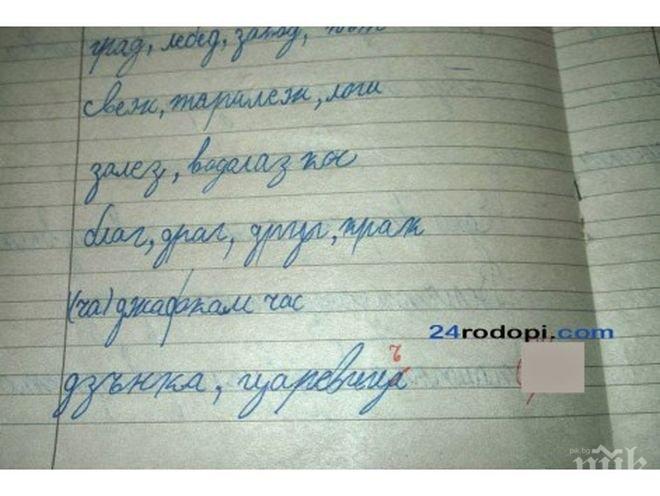 град, лебед, завод,
свеж, таралеж, лош
залез, водолаз кос
благ, драг, друг, крак
(ча) джафкам час
24rodopi.com
ъ
дзънка, царевица
pik.bg
пик